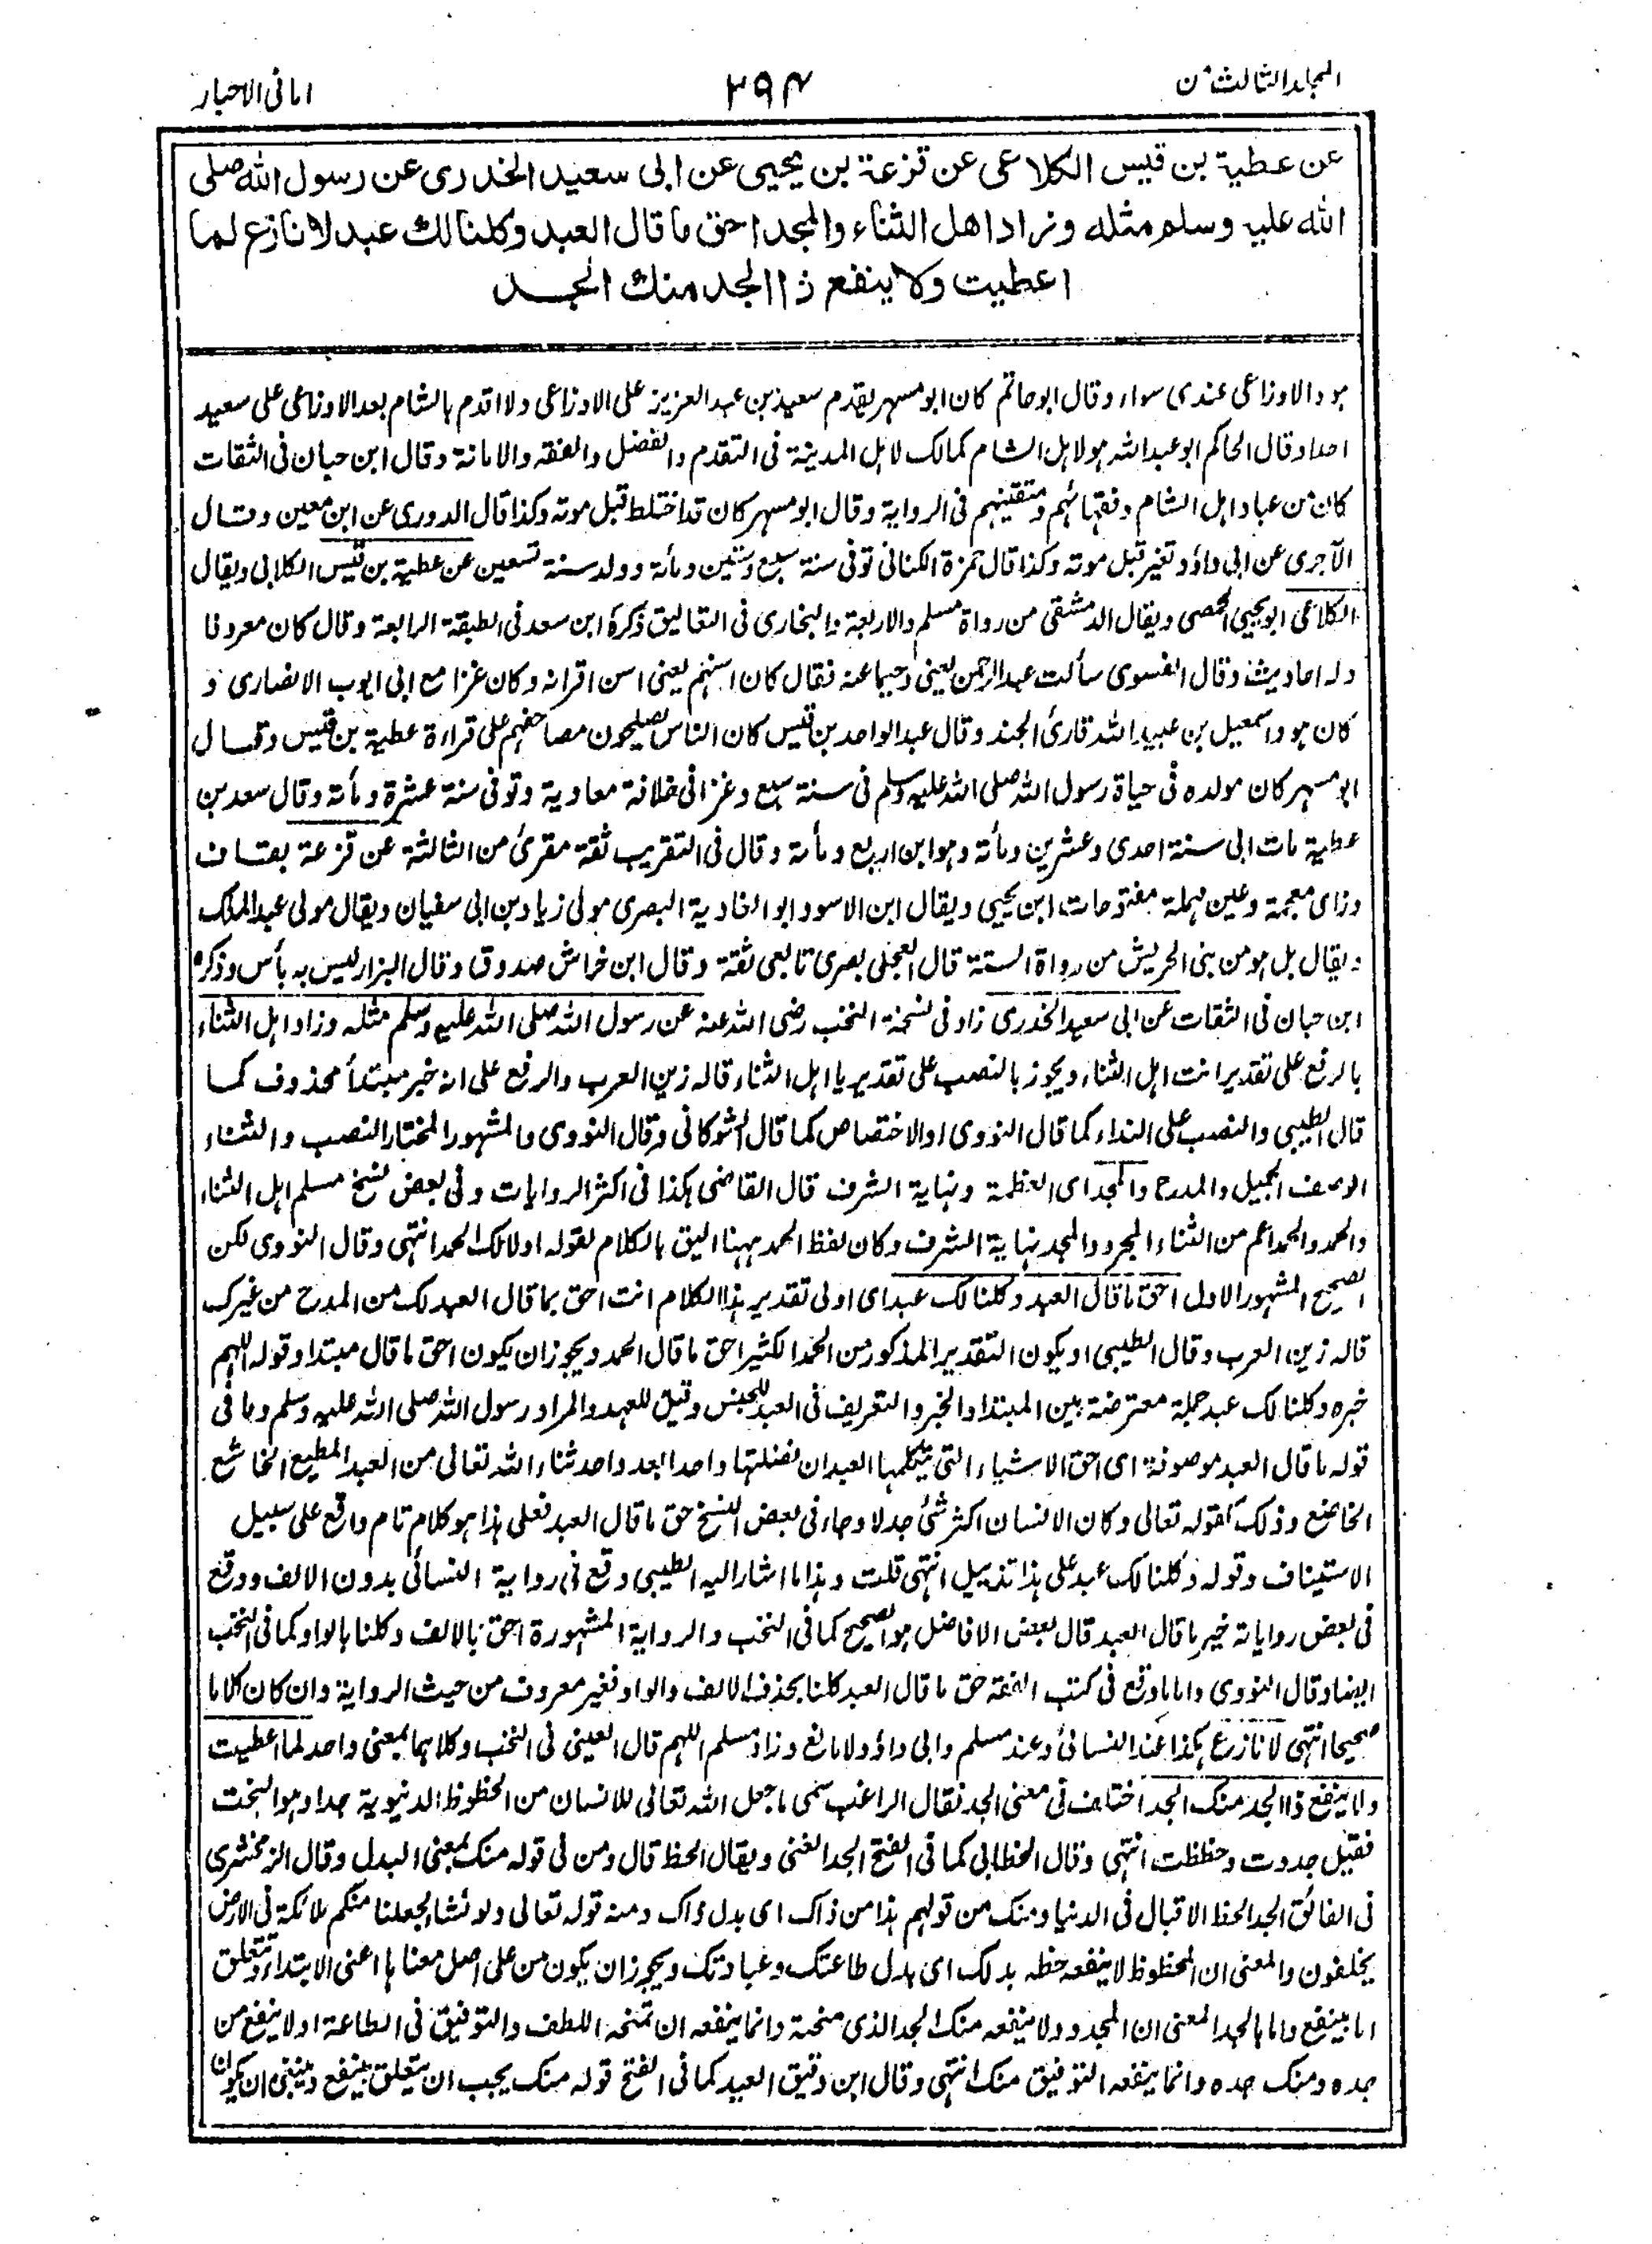 المجلد الثالث من
٢٩٤
امانی الاحبار
عن عطية بن قيس الكلاعی عن قزعة بن يحيی عن ابی سعيد الخدری عن رسول الله صلی
الله عليه وسلم مثله وزاد اهل الثناء والمجد احق ما قال العبد وكلنا لك عبد لا نازع لما
اعطيت ولا ينفع ذا الجد منك الجد
هو والاوزاعی عندی سواء وقال ابوحاتم كان ابو مسهر يقدم سعيد بن عبد العزيز علی الاوزاعی ولا اقدم بالشام بعد الاوزاعی علی سعيد
احدا وقال الحاكم ابو عبد الله هو لاهل الشام كمالك لاهل المدينة فی التقدم والفضل والفقه والامانة وقال ابن حبان فی الثقات
كان من عباد اهل الشام وفقهائهم ومتقنيهم فی الرواية وقال ابو مسهر كان قد اختلط قبل موته وكذا قال الدوری عن ابن معين وقال
الآجری عن ابی داؤد تغير قبل موته وكذا قال حمزة الكنانی توفی سنة سبع وستين ومأتة وولد سنة تسعين عن عطية بن قيس الكلابی ويقال
الكلاعی ابو يحيی الحمصی ويقال الدمشقی من رواة مسلم والاربعة والبخاری فی التعاليق ذكره ابن سعد فی الطبقة الرابعة وقال كان معروفا
وله احاديث وقال الفسوی سألت عبد الرحمن يعنی دحيما عنه فقال كان اسنهم يعنی اسن اقرانه وكان غزا مع ابی ايوب الانصاری و
كان هو واسمعيل بن عبيد الله قارئ الجند وقال عبد الواحد بن قيس كان الناس يصلحون مصاحفهم علی قراءة عطية بن قيس وقال
ابو مسهر كان مولده فی حياة رسول الله صلی الله عليه وسلم فی سنة سبع وغزا فی خلافة معاوية وتوفی سنة عشرة ومأتة وقال سعد بن
عطية مات ابی سنة احدی وعشرين ومأتة وهو ابن اربع ومأتة وقال فی التقريب ثقة مقرئ من الثالثة عن قزعة بقاف
وزای معجمة وعين مهملة مفتوحات ابن يحيی ويقال ابن الاسود ابو الغادية البصری مولی زياد بن ابی سفيان ويقال مولی عبد الملك
ويقال بل هو من بنی الحريش من رواة الستة قال العجلی بصری تابعی ثقة وقال ابن خراش صدوق وقال البزار ليس به بأس وذكره
ابن حبان فی الثقات عن ابی سعيد الخدری زاد فی نسخة النخب رضی الله عنه عن رسول الله صلی الله عليه وسلم مثله وزاد اهل الثناء
بالرفع علی تقدير انت اهل الثناء ويجوز بالنصب علی تقدير يا اهل الثناء قاله زين العرب والرفع علی انه خبر مبتدأ محذوف كما
قال الطيبی والنصب علی النداء كما قال النووی او الاختصاص كما قال الشوكانی وقال النووی والمشهور المختار النصب والثناء
الوصف الجميل والمدح والمجد ای العظمة ونهاية الشرف قال القاضی هكذا فی اكثر الروايات وفی بعض نسخ مسلم اهل الثناء
والحمد والحمد اعم من الثناء المجرد والمجد نهاية الشرف وكان لفظ الحمد ههنا اليق بالكلام لقوله اولا لك الحمد انتهی وقال النووی لكن
الصحيح المشهور الاول احق ما قال العبد وكلنا لك عبد ای اولی تقدير هذا الكلام انت احق بما قال العبد لك من المدح من غيرك
قاله زين العرب وقال الطيبی او يكون التقدير المذكور من الحمد الكثير احق ما قال الحمد ويجوز ان يكون احق ما قال مبتدا وقوله اللهم
خبره وكلنا لك عبد جملة معترضة بين المبتدا والخبر والتعريف فی العبد للجنس وقيل للعهد والمراد رسول الله صلی الله عليه وسلم وما فی
قوله ما قال العبد موصوفة ای احق الاشياء التی يتكلمها العبد ان فضلتها واحدا بعد واحد ثناء الله تعالی من العبد المطيع الخاشع
الخاضع وذلك كقوله تعالی وكان الانسان اكثر شئ جدلا وجاء فی بعض النسخ حق ما قال العبد فعلی هذا هو كلام تام واقع علی سبيل
الاستيناف وقوله وكلنا لك عبد علی هذا تذييل انتهی قلت وهذا ما اشار اليه الطيبی وقع فی رواية النسائی بدون الالف ووقع
فی بعض رواياته خير ما قال العبد قال بعض الافاضل هو الصحيح كما فی النخب والرواية المشهورة احق بالالف وكلنا بالواو كما فی النخب
ايضا وقال النووی واما ما وقع فی كتب الفقه حق ما قال العبد كلنا بحذف الالف والواو فغير معروف من حيث الرواية وان كان كلاما
صحيحا انتهی لا نازع هكذا عند النسائی وعند مسلم وابی داؤد لا مانع وزاد مسلم اللهم قال العينی فی النخب وكلاهما بمعنی واحد لما اعطيت
ولا ينفع ذا الجد منك الجد اختلف فی معنی الجد فقال الراغب سمی ما جعل الله تعالی للانسان من الحظوظ الدنيوية جدا وهو البخت
فقيل جددت وحظظت انتهی وقال الخطابی كما فی الفتح الجد الغنی ويقال الحظ قال ومن فی قوله منك بمعنی البدل وقال الزمخشری
فی الفائق الجد الحظ الاقبال فی الدنيا ومنك من قولهم هذا من ذاك ای بدل ذاك ومنه قوله تعالی ولو نشاء لجعلنا منكم ملائكة فی الارض
يخلفون والمعنی ان المحظوظ لا ينفعه حظه بدلك ای بدل طاعتك وعبادتك ويجوز ان يكون من علی اصل معناها اعنی الابتداء وتتعلق
اما بينفع واما بالجد المعنی ان المجدود لا ينفعه منك الجد الذی منحته وانما ينفعه ان تمنحه اللطف والتوفيق فی الطاعة او لا ينفع من
جده ومنك جده وانما ينفعه التوفيق منك انتهی وقال ابن دقيق العيد كما فی الفتح قوله منك يجب ان يتعلق بينفع وينبغی ان يكون